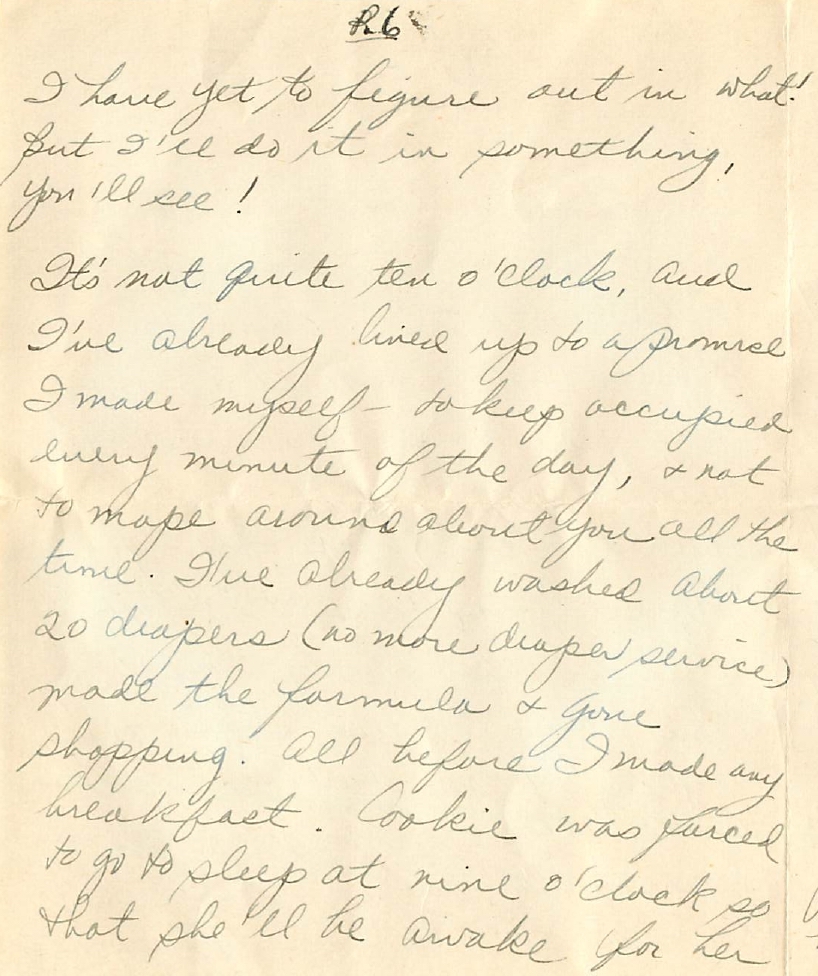 P.6
I have yet to figure out in what!
But I'll do it in something,
you'll see!
It's not quite ten o'clock, and
I've already lived up to a promise
I made myself - to keep occupied
every minute of the day, & not
to mope around about you all the
time. I've already washed about
20 diapers (no more diaper service)
made the formula & gone
shopping. All before I made any
breakfast. Cookie was forced
to go to sleep at nine o'clock so
that she'll be awake for her